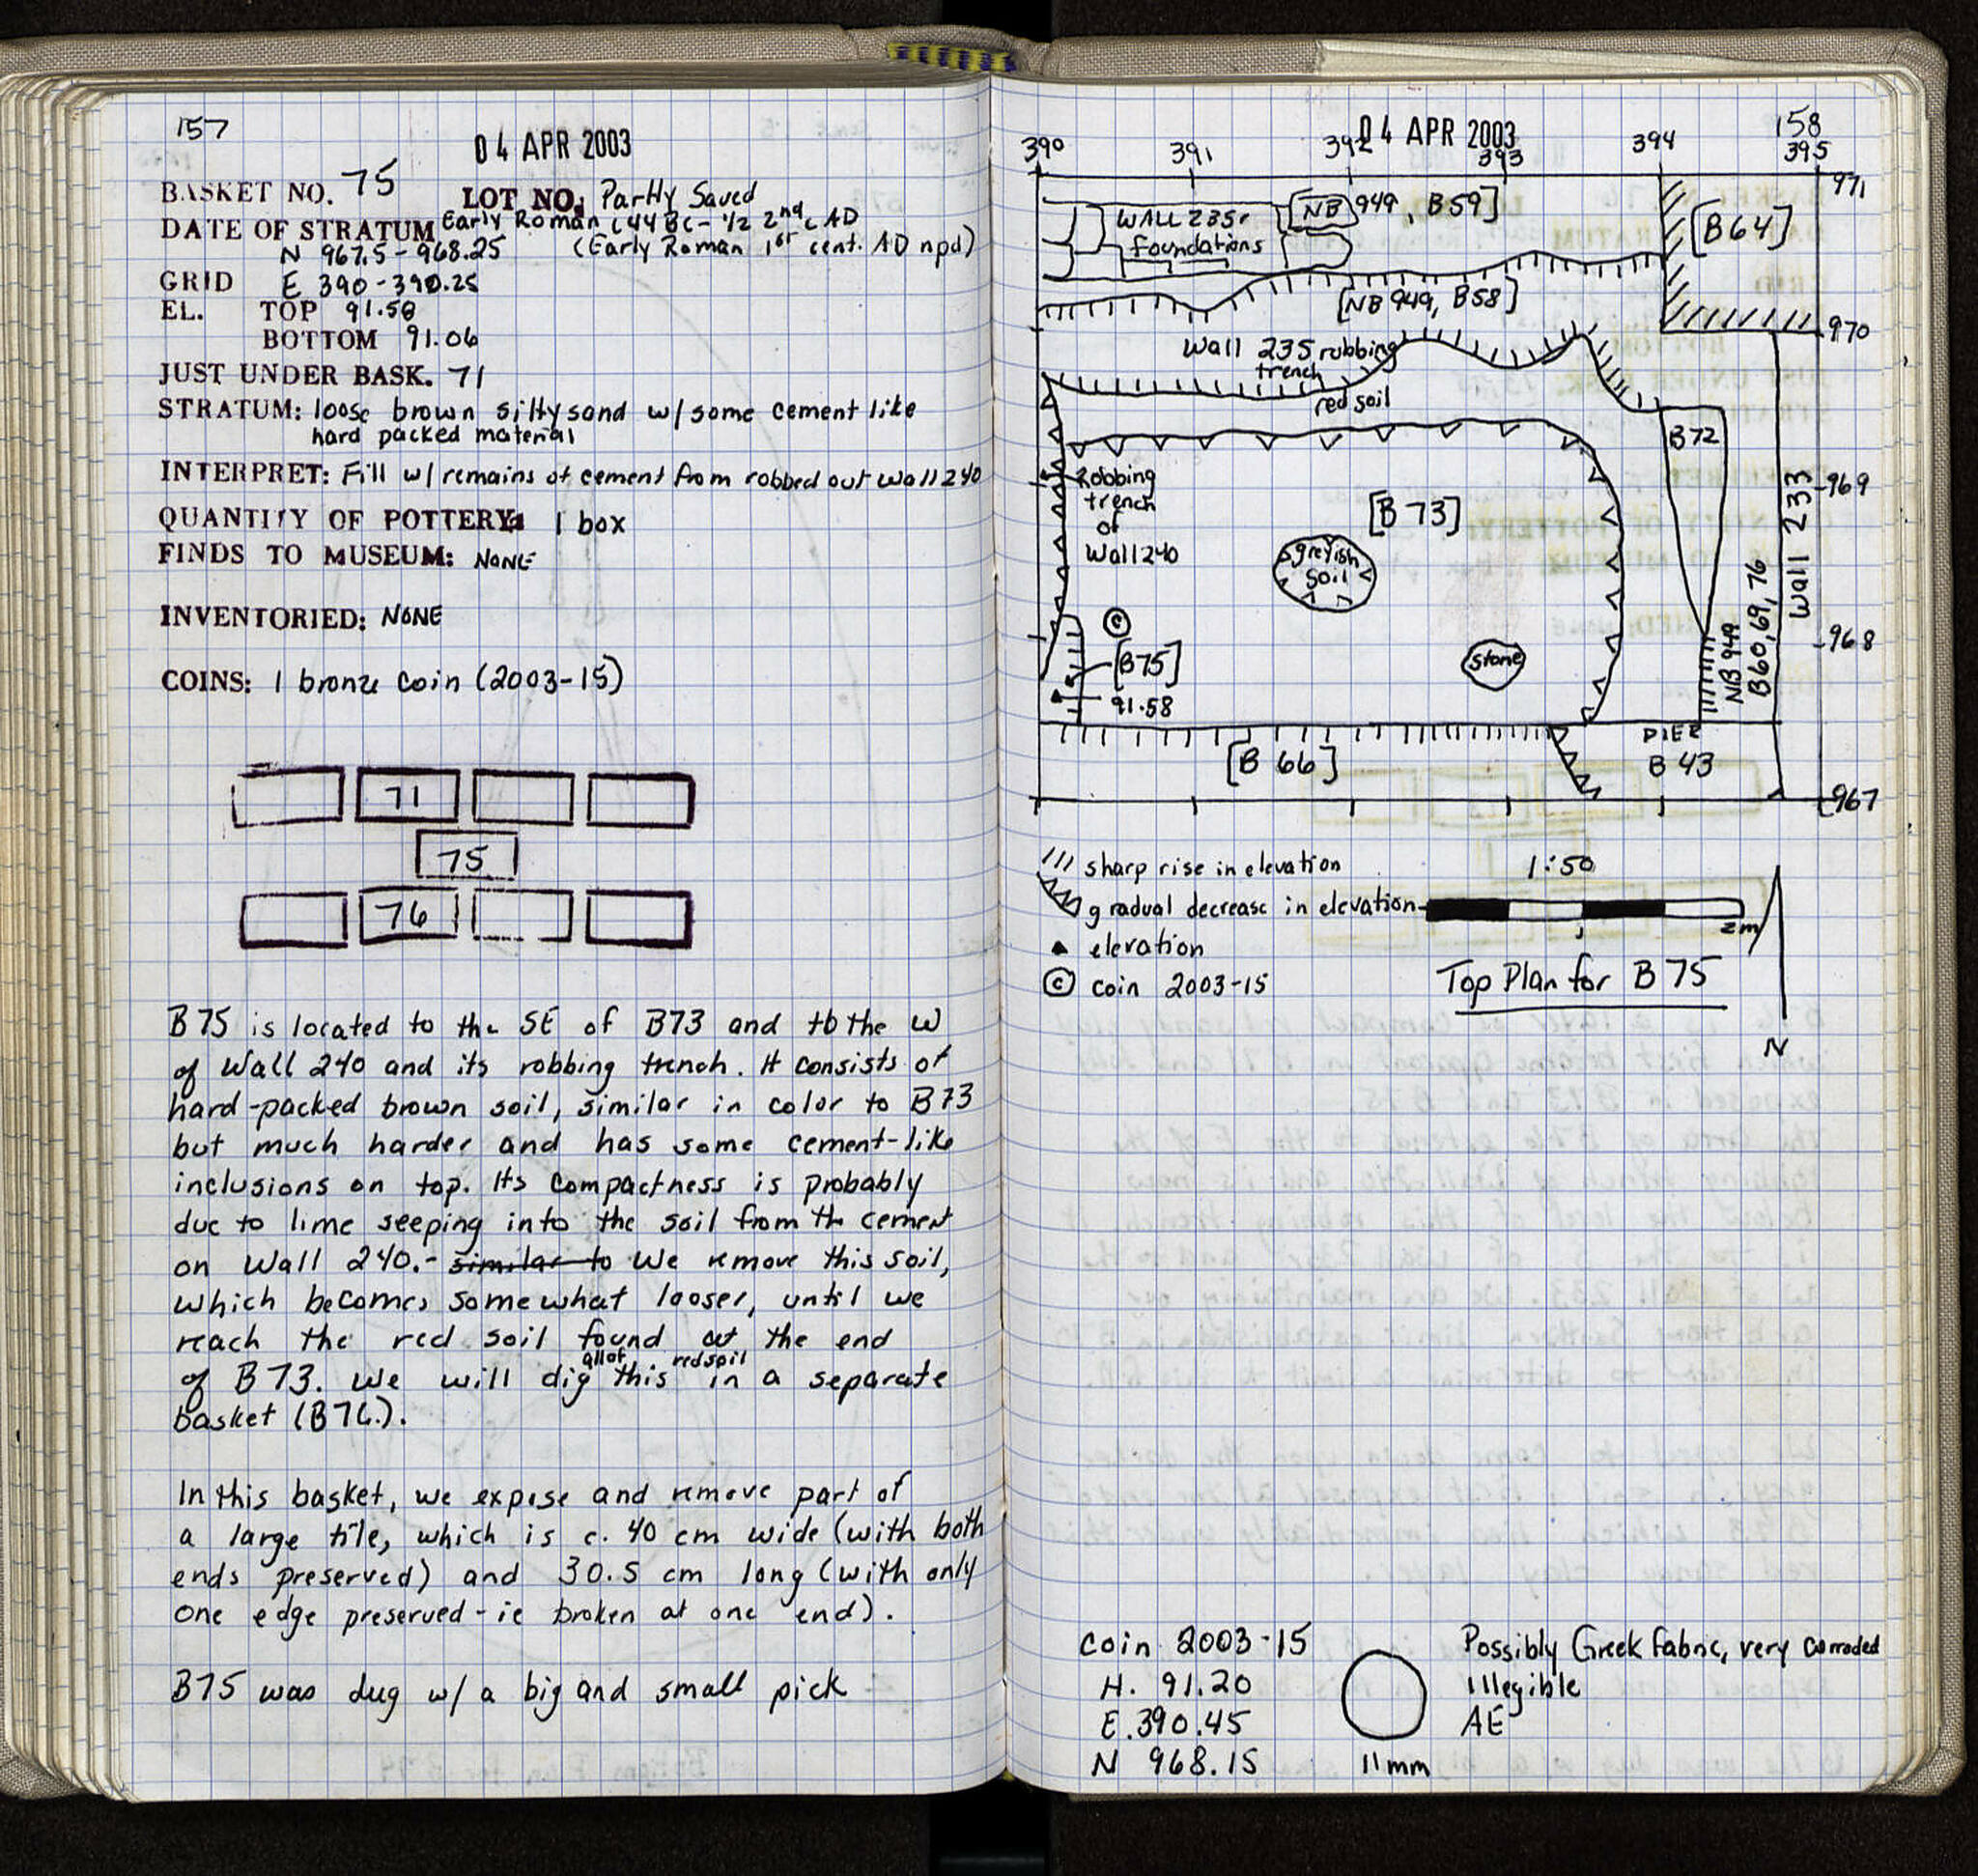 157
04 APR 2003
BASKET NO. 75 LOT NO: Partly Saved
DATE OF STRATUM Early Roman (44 BC - 1/2 2nd c AD
N 967.5 - 968.25 (Early Roman 1st cent. AD npd)
GRID E 390 - 390.25
EL. TOP 91.58
BOTTOM 91.06
JUST UNDER BASK. 71
STRATUM: loose brown silty sand w/ some cement like
hard packed material
INTERPRET: Fill w/ remains of cement from robbed out Wall 240
QUANTITY OF POTTERY: 1 box
FINDS TO MUSEUM: NONE
INVENTORIED: NONE
COINS: 1 bronze coin (2003-15)
71
75
76
B75 is located to the SE of B73 and to the W
of Wall 240 and its robbing trench. It consists of
hard-packed brown soil, similar in color to B73
but much harder and has some cement-like
inclusions on top. Its compactness is probably
due to lime seeping into the soil from the cement
on Wall 240.- similar to We remove this soil,
which becomes somewhat looser, until we
reach the red soil found at the end
of B73. We will dig all of this red soil in a separate
basket (B76.).
In this basket, we expose and remove part of
a large tile, which is c. 40 cm wide (with both
ends preserved) and 30.5 cm long (with only
one edge preserved - ie broken at one end).
B75 was dug w/ a big and small pick
158
04 APR 2003
390 391 392 393 394 395
971
WALL 235r
foundations
[NB 949, B59]
[B64]
[NB 949, B58]
970
Wall 235 robbing
trench
red soil
B72
969
Robbing
trench
of
Wall 240
[B 73]
greyish
soil
Wall 233
©
[B75]
91.58
stone
968
NB 949
B60, 69, 76
[B 66]
PIER
B 43
967
/// sharp rise in elevation
gradual decrease in elevation
▲ elevation
© coin 2003-15
1:50
1
2m
Top Plan for B 75
N
coin 2003-15
H. 91.20
E. 390.45
N 968.15
11mm
Possibly Greek fabric, very corroded
Illegible
AE